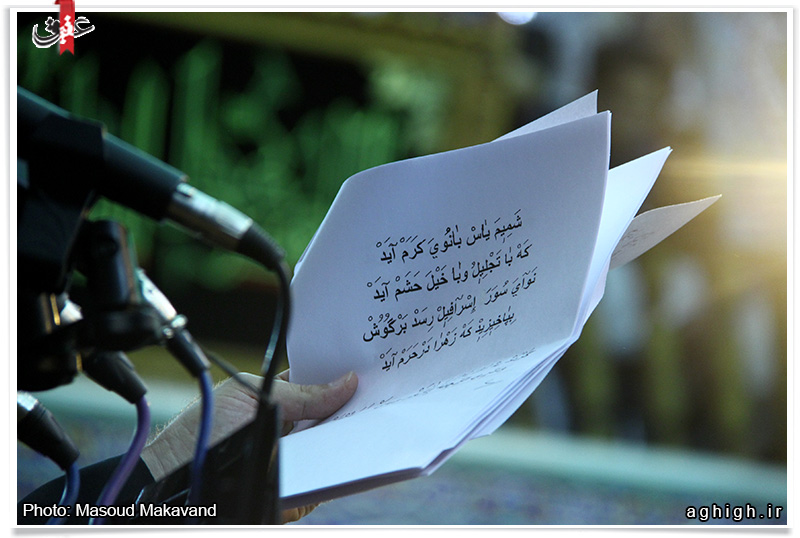 عقیق
شَمِیمَ یٰاسْ بٰانُویِ کَرَمْ آیَدْ
کَهْ بٰا تَجْلِیلُ وَبٰا خَیْلَ حَشَمْ آیَدْ
نَوٰایِ سُورَ إِسْرٰافِیلْ رِسَدْ بَرْگُوُشْ
بِپٰاخیٖزیٖدْ کَه زَهْرٰا دَرْحَرَمْ آیَدْ
Photo: Masoud Makavand
aghigh.ir